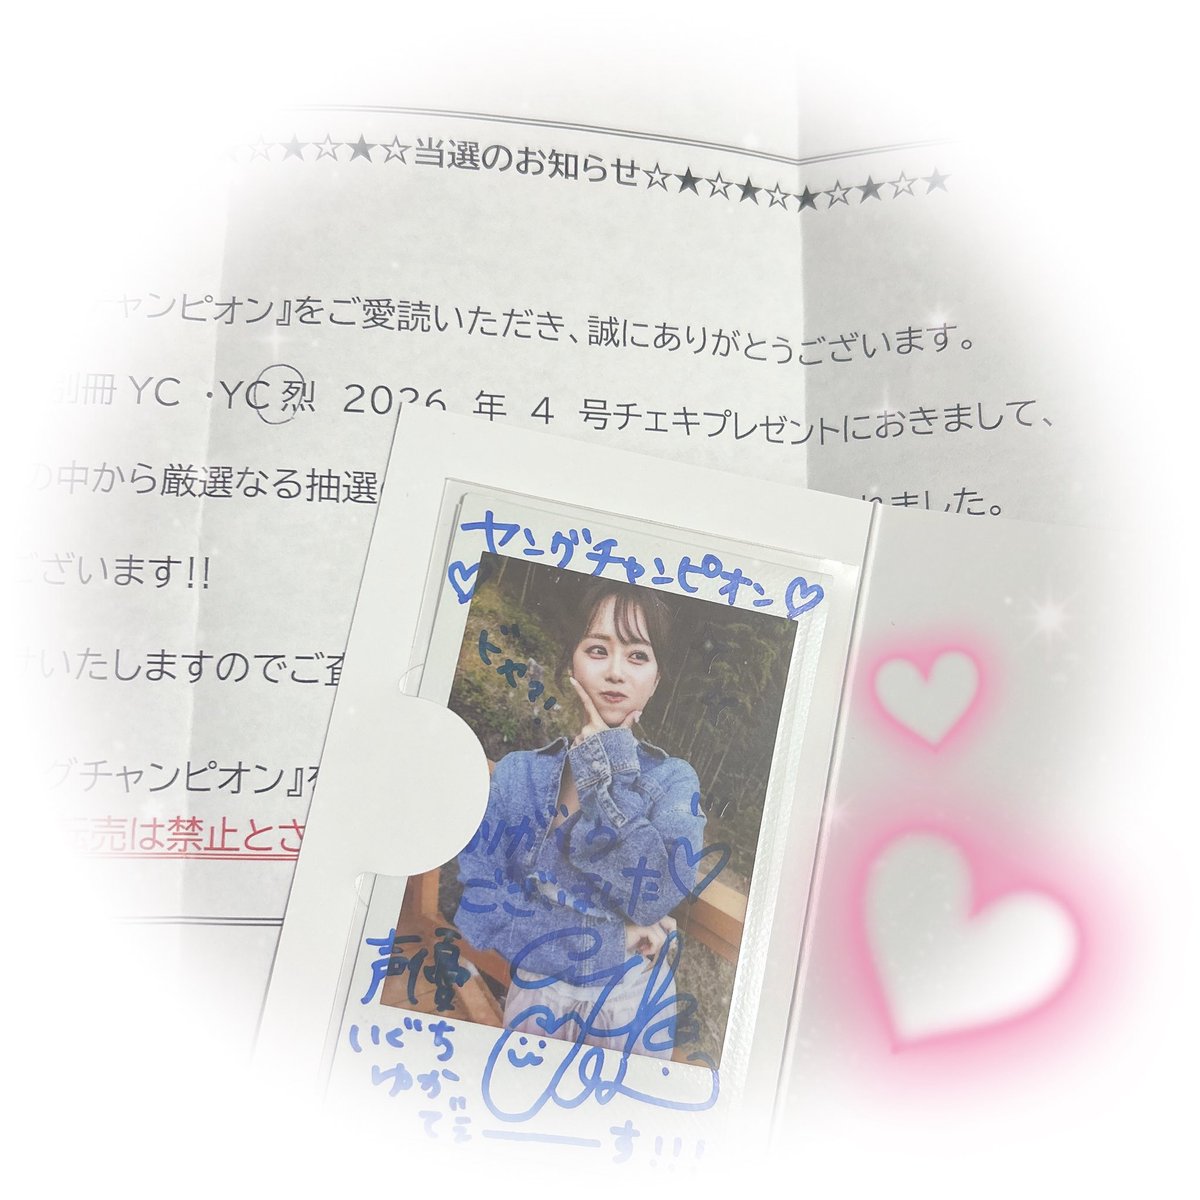 ☆★☆★☆当選のお知らせ☆★☆★☆★☆★☆★
ャンピオン』をご愛読いただき、誠にありがとうございます。
別冊YC ・YC 烈 2026 年 4 号チェキプレゼントにおきまして、
の中から厳選なる抽選 れました。
ございます!!
いたしますのでご査
グチャンピオン』を
転売は禁止とさ
ヤングチャンピオン♡
♡
ドヤァ!
ありがとう
ございました♡
声優
いぐち
ゆか
でぇーーす!!!